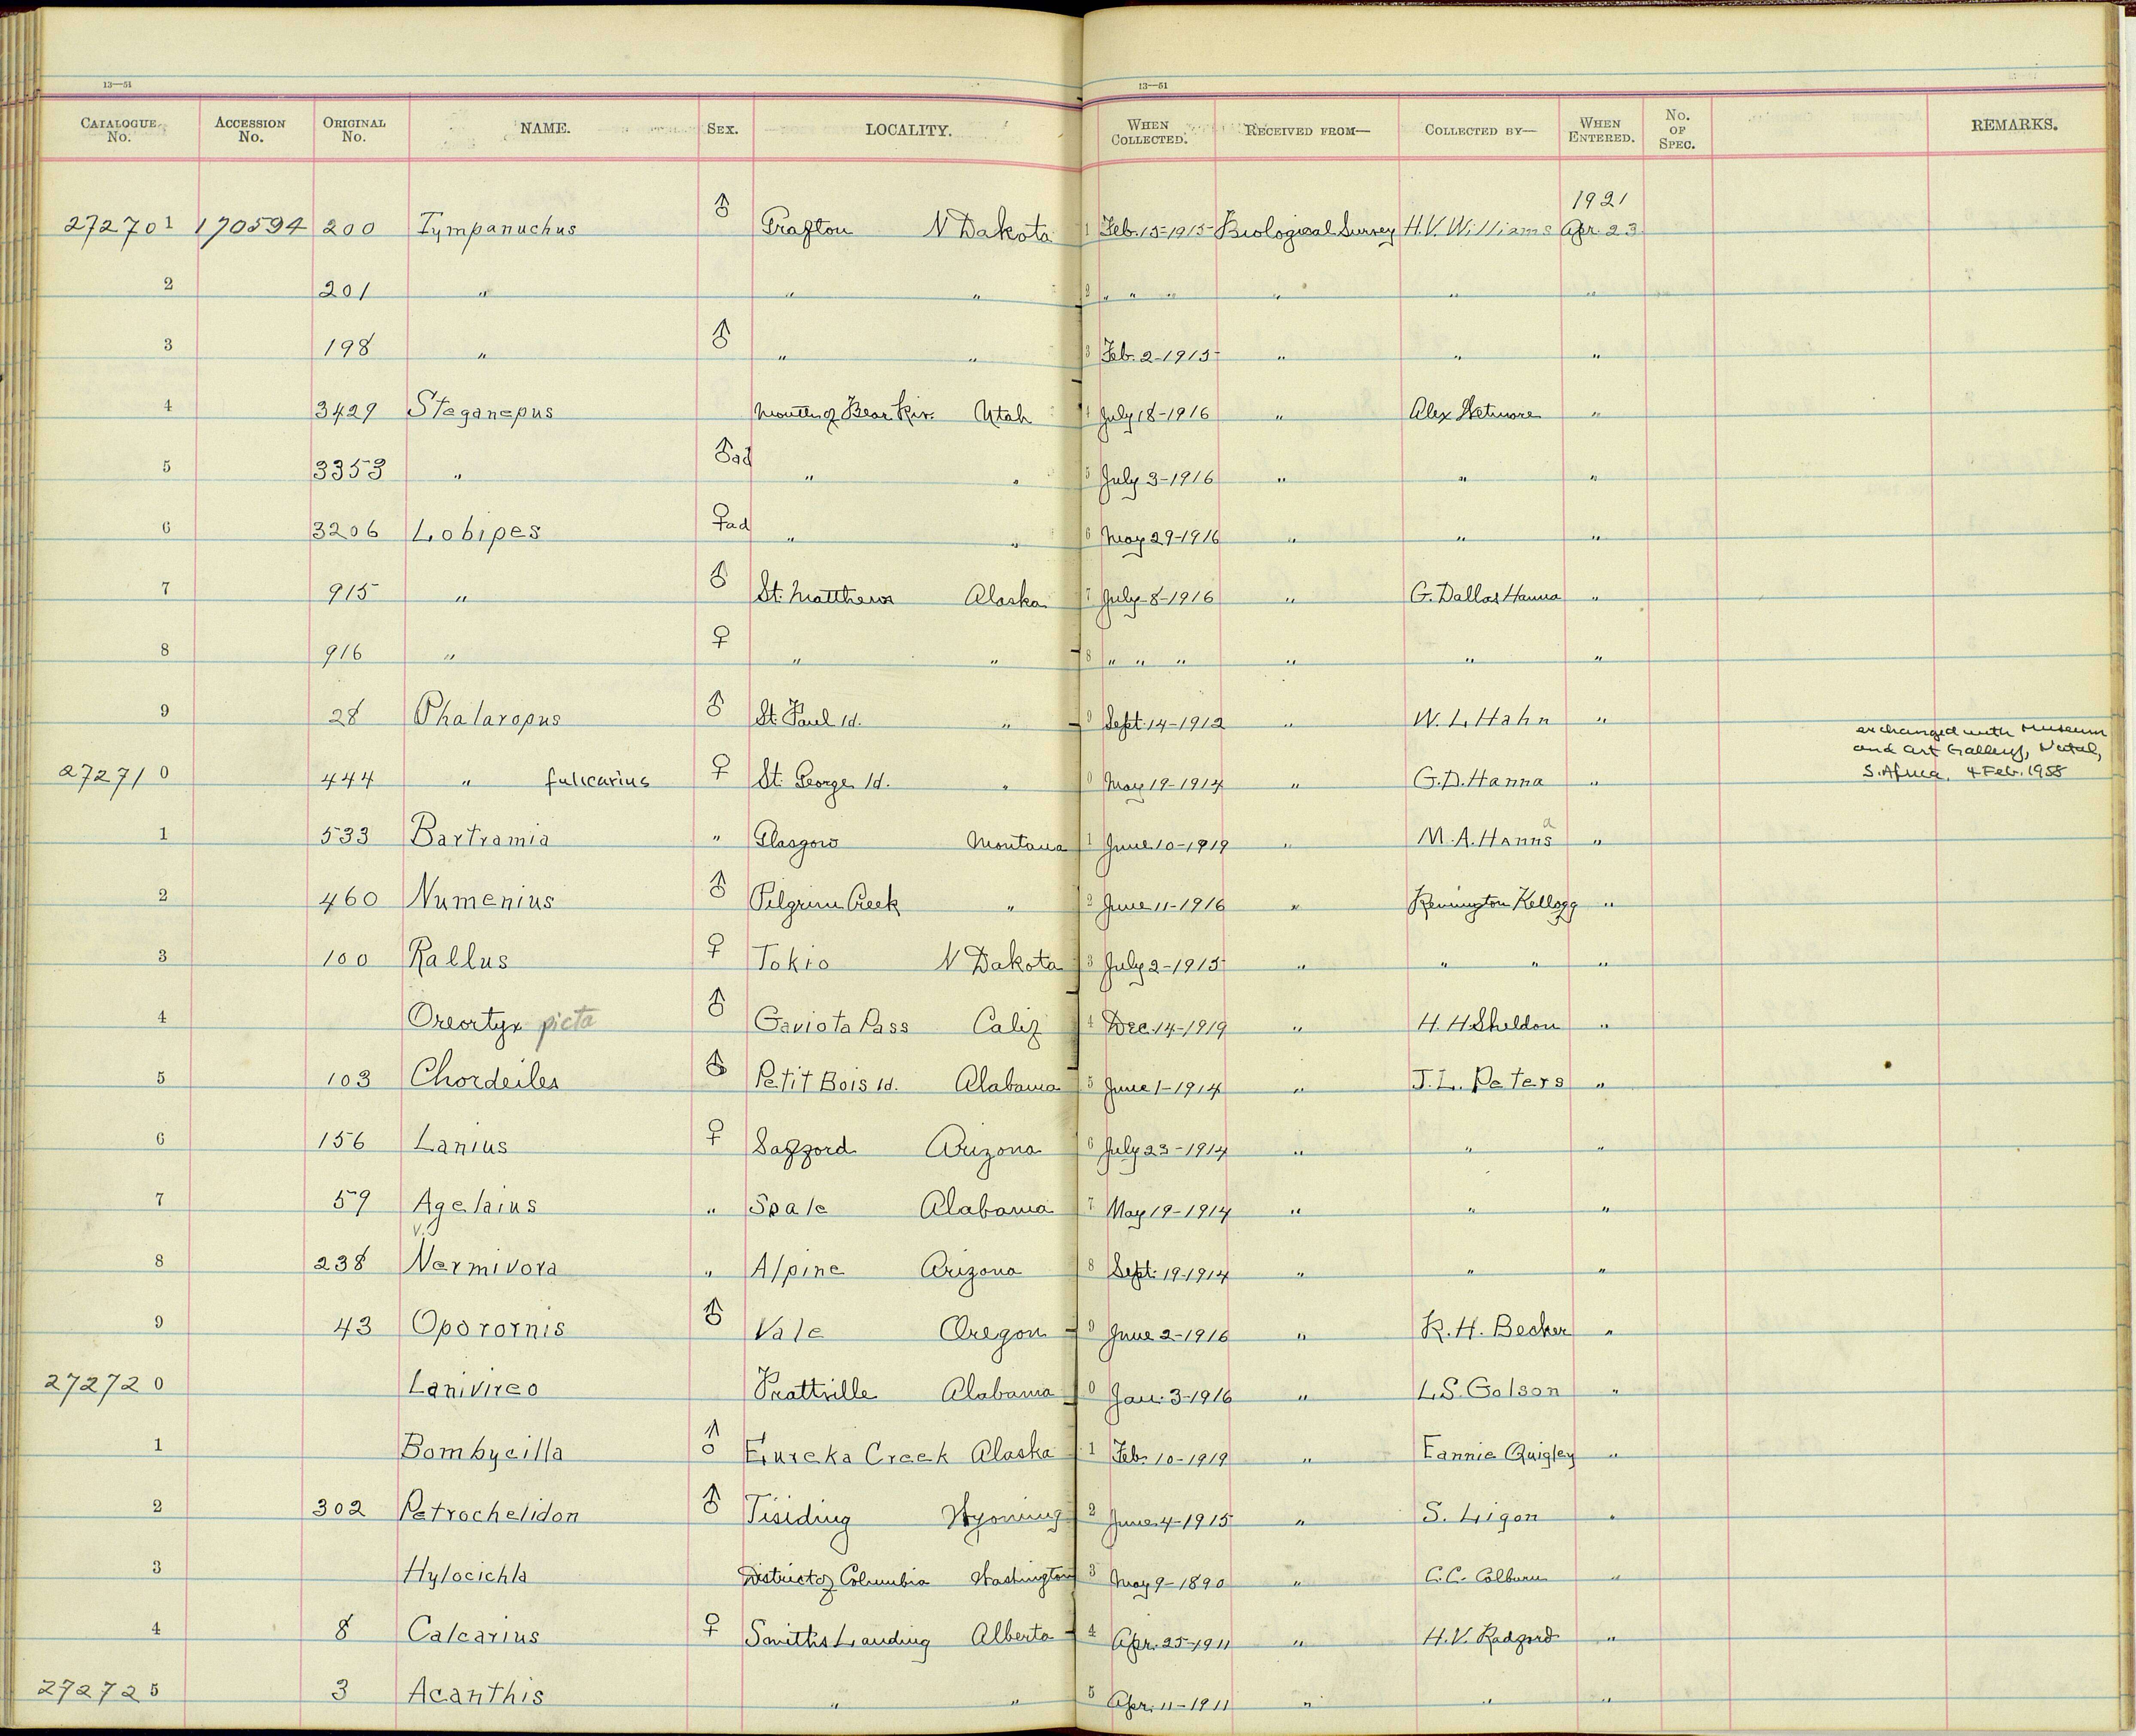 13—51 13—51
CATALOGUE No. ACCESSION No. ORIGINAL No. NAME. SEX. LOCALITY. WHEN COLLECTED. RECEIVED FROM— COLLECTED BY— WHEN ENTERED. No. OF SPEC. REMARKS.
1921
272701 170594 200 Tympanuchus ♂ Grafton N Dakota 1 Feb. 15-1915 Biological Survey H.V. Williams Apr. 23
2 201 " " " 2 " " " " " "
3 198 " ♂ " " 3 Feb. 2-1915 " " "
4 3429 Steganopus Mouth of Bear Riv. Utah 4 July 18-1916 " Alex Wetmore "
5 3353 " ♂ad " " 5 July 3-1916 " " "
6 3206 Lobipes ♀ad " " 6 May 29-1916 " " "
7 915 " ♂ St. Matthews Alaska 7 July-8-1916 " G. Dallas Hanna "
8 916 " ♀ " " 8 " " " " " "
9 28 Phalaropus ♂ St. Paul Id. " 9 Sept. 14-1912 " W. L. Hahn "
exchanged with Museum
and Art Gallery, Natal,
S. Africa. 4 Feb. 1958
272710 444 " fulicarius ♀ St. George Id. " 0 May 19-1914 " G.D. Hanna "
1 533 Bartramia " Glasgow Montana 1 June 10-1919 " M.A. Hanna "
2 460 Numenius ♂ Pilgrim Creek " 2 June 11-1916 " Remington Kellogg "
3 100 Rallus ♀ Tokio N Dakota 3 July 2-1915 " " " "
4 Oreortyx picta ♂ Gaviota Pass Calif 4 Dec. 14-1919 " H. H Sheldon "
5 103 Chordeiles ♂ Petit Bois Id. Alabama 5 June 1-1914 " J. L. Peters "
6 156 Lanius ♀ Safford Arizona 6 July 23-1914 " " "
7 59 Agelaius " Seale Alabama 7 May 19-1914 " " "
V.
8 238 Nermivora " Alpine Arizona 8 Sept. 19-1914 " " "
9 43 Oporornis ♂ Vale Oregon 9 June 2-1916 " R. H. Becker "
272720 Lanivireo Prattville Alabama 0 Jan. 3-1916 " L.S. Golson "
1 Bombycilla ♂ Eureka Creek Alaska 1 Feb. 10-1919 " Fannie Quigley "
2 302 Petrochelidon ♂ Tisiding Wyoming 2 June 4-1915 " S. Ligon "
3 Hylocichla District of Columbia Washington 3 May 9-1890 " C.C. Colburn "
4 8 Calcarius ♀ Smiths Landing Alberta 4 Apr. 25-1911 " H.V. Radford "
272725 3 Acanthis " " 5 Apr. 11-1911 " " "